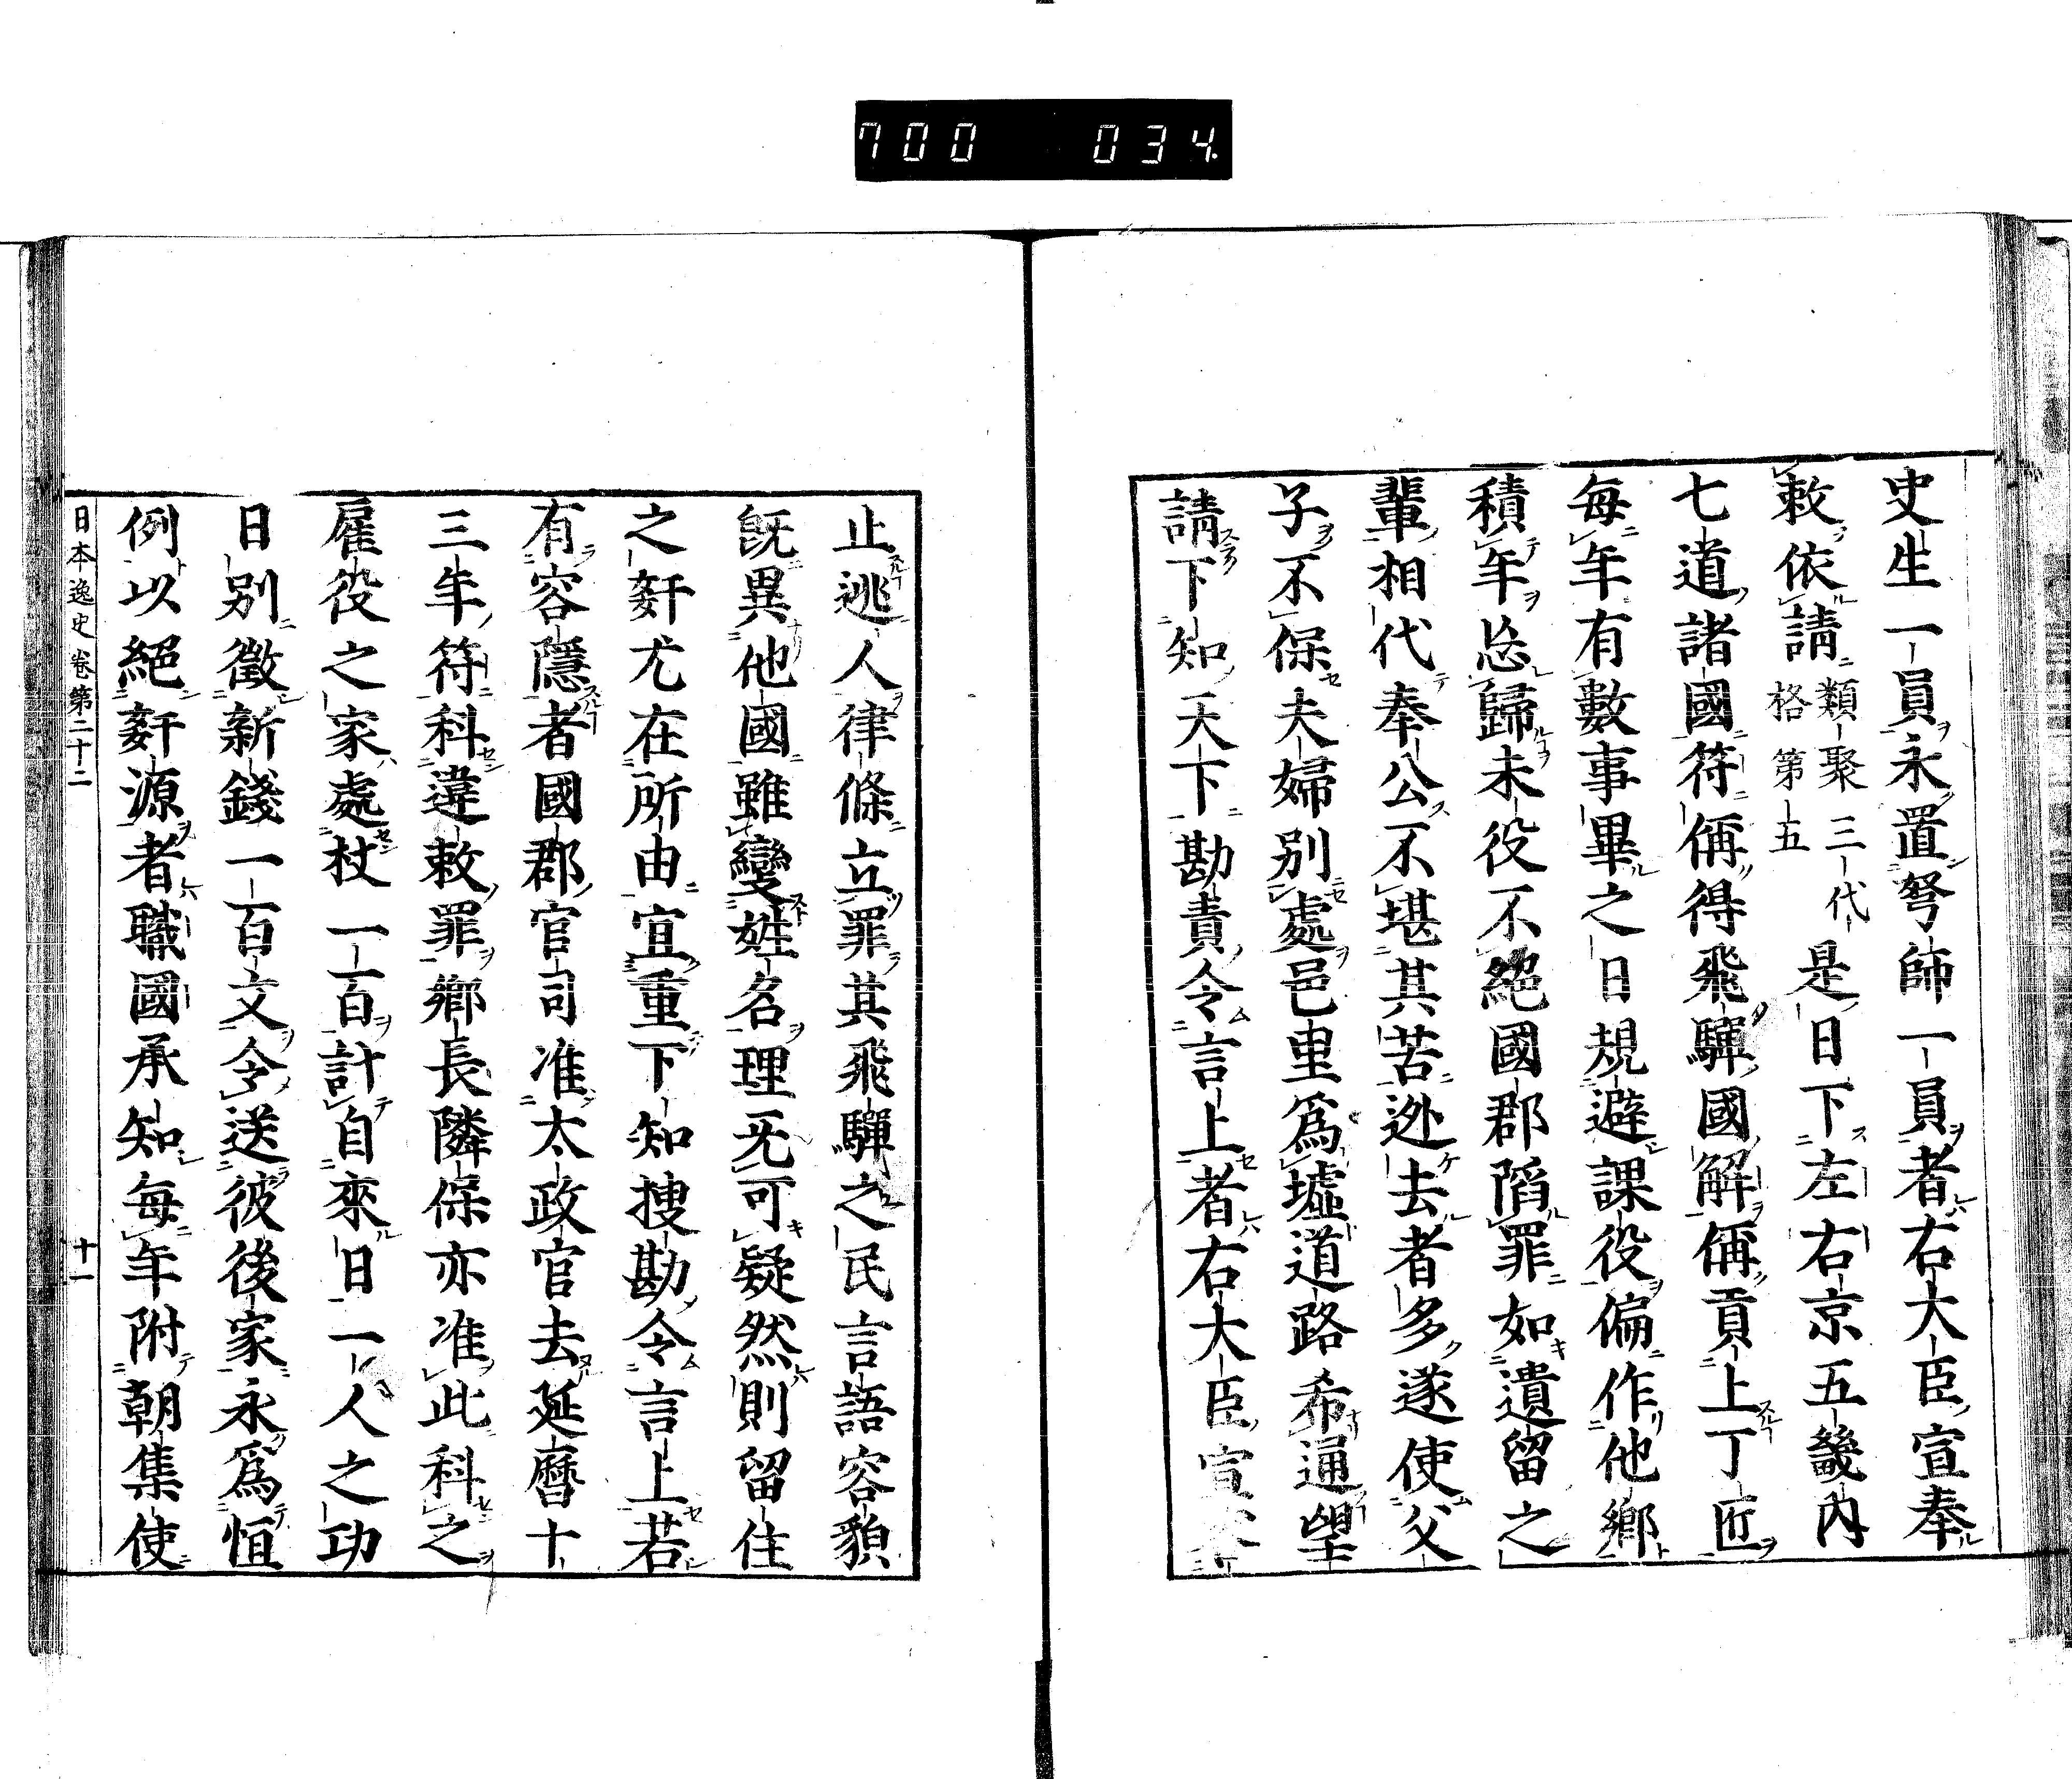 700 034
史生一員永置弩師一員者右大臣宣奉
敕依請類聚三代格第五是日下左右京五畿内
七道諸國符偁得飛驒國解偁貢上丁匠
毎年有數事畢之日規避課役偏作他鄉
積年忘歸未役不絕國郡陷罪如遺留之
輩相代奉公不堪其苦迯去者多遂使父
子不保夫婦別處邑里爲墟道路希通望
請下知天下勘責令言上者右大臣宣奉
止逃人律條立罪其飛驒之民言語容貌
既異他國雖變姓名理无可疑然則留住
之姧尤在所由宜重下知搜勘令言上若
有容隱者國郡官司准太政官去延曆十
三年符科違敕罪鄉長隣保亦准此科之
雇役之家處杖一百計自來日一人之功
日別徵新錢一百文令送彼後家永爲恒
例以絕姧源者職國承知每年附朝集使
日本逸史卷第二十二 十一